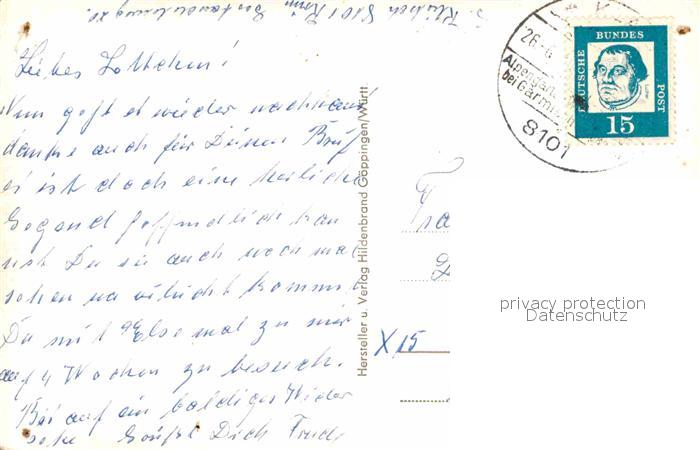 Liebes Lottchen!
Nun geht es wieder nach Haus
danke auch für Deinen Brief
es ist doch eine herrliche
Gegend hoffendlich kan
nst Du sie auch noch mal
sehen na vileicht kommst
Du mit Else mal zu mir
auf 4 Wochen zu besuch.
Bis auf ein baldiges Wieder
sehn Grüßt Dich
Hersteller u. Verlag Hildenbrand Göppingen/Württ
26.-6
bei Garmisch
8101
DEUTSCHE BUNDES POST
15
X 15
privacy protection
Datenschutz